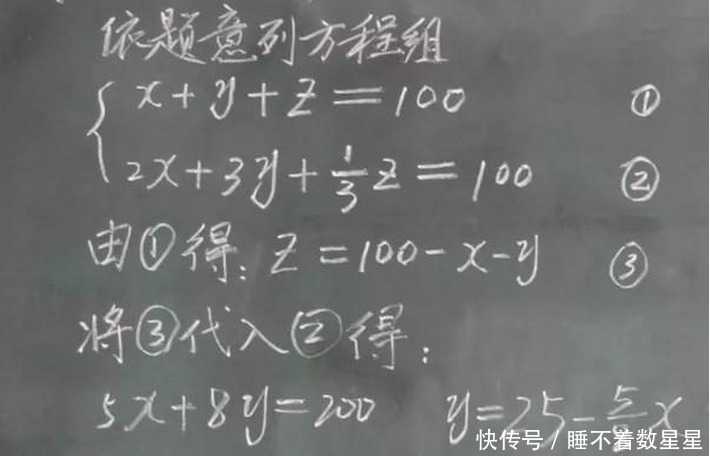 依题意列方程组
x+y+z=100 ①
2x+3y+1/3z=100 ②
由①得:z=100-x-y ③
将③代入②得:
5x+8y=200 y=25-5/8x
快传号/睡不着数星星